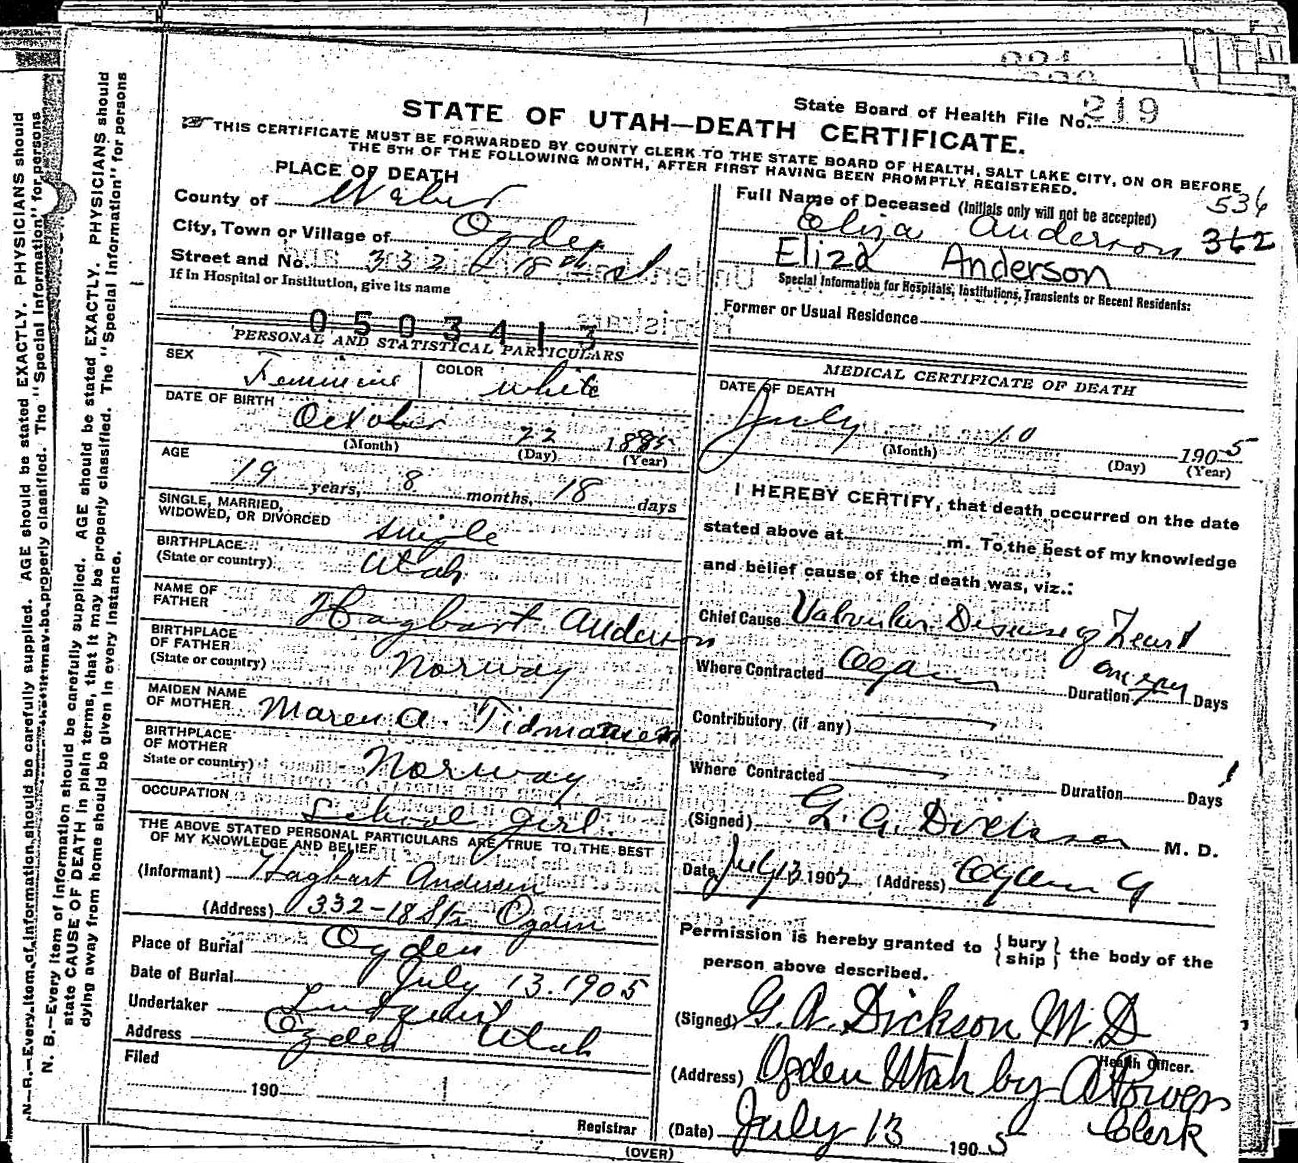 219
State Board of Health File No.
STATE OF UTAH—DEATH CERTIFICATE.
THIS CERTIFICATE MUST BE FORWARDED BY COUNTY CLERK TO THE STATE BOARD OF HEALTH, SALT LAKE CITY, ON OR BEFORE
THE 5TH OF THE FOLLOWING MONTH, AFTER FIRST HAVING BEEN PROMPTLY REGISTERED.
PLACE OF DEATH
County of Weber
City, Town or Village of Ogden
Street and No. 332 18th st
If in Hospital or Institution, give its name
0503413
PERSONAL AND STATISTICAL PARTICULARS
SEX Feminine COLOR white
DATE OF BIRTH October 22 1885
(Month) (Day) (Year)
AGE 19 years, 8 months, 18 days
SINGLE, MARRIED,
WIDOWED, OR DIVORCED single
BIRTHPLACE
(State or country) Utah
NAME OF
FATHER Hagbart Anderson
BIRTHPLACE
OF FATHER
(State or country) Norway
MAIDEN NAME
OF MOTHER Maren A.
BIRTHPLACE
OF MOTHER
State or country) Norway
OCCUPATION School girl
THE ABOVE STATED PERSONAL PARTICULARS ARE TRUE TO THE BEST
OF MY KNOWLEDGE AND BELIEF
(Informant) Hagbart Andersen
(Address) 332-18 St. Ogden
Place of Burial Ogden
Date of Burial July 13. 1905
Undertaker Lindquist
Address Ogden Utah
Filed
190
Registrar
Full Name of Deceased (Initials only will not be accepted) 536
Eliza Anderson 362
Eliza Anderson
Special Information for Hospitals, Institutions, Transients or Recent Residents:
Former or Usual Residence
MEDICAL CERTIFICATE OF DEATH
DATE OF DEATH
July 10 1905
(Month) (Day) (Year)
I HEREBY CERTIFY, that death occurred on the date
stated above at m. To the best of my knowledge
and belief cause of the death was, viz.:
Chief Cause Valvular Disease of Heart
Where Contracted Ogden Duration Days
Contributory (if any)
Where Contracted Duration Days
(Signed) G. A. Dickson M. D.
Date July 13 190 (Address) Ogden
Permission is hereby granted to {bury
ship} the body of the
person above described.
(Signed) G. A. Dickson M.D
Health Officer.
(Address) Ogden Utah by
Clerk
(Date) July 13 1905
(OVER)
N. B.—Every item of information should be carefully supplied. AGE should be stated EXACTLY. PHYSICIANS should
state CAUSE OF DEATH in plain terms, that it may be properly classified. The "Special Information" for persons
dying away from home should be given in every instance.
N. B.—Every item of information should be carefully supplied. AGE should be stated EXACTLY. PHYSICIANS should
that it may be properly classified. The "Special Information" for persons